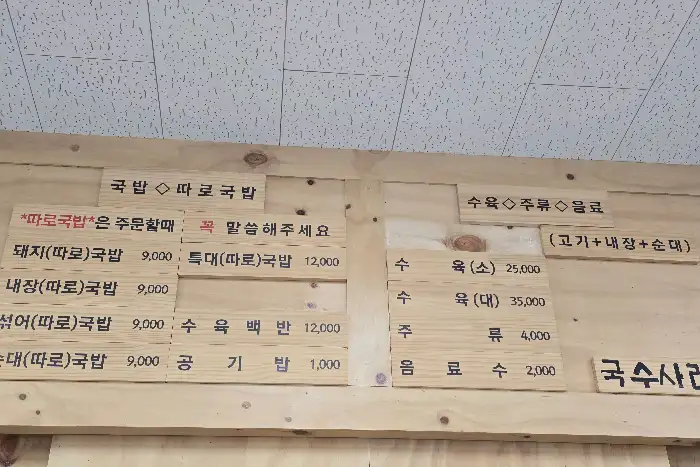 국밥◇따로국밥
*따로국밥*은 주문할때 꼭 말씀해주세요
돼지(따로)국밥 9,000
내장(따로)국밥 9,000
섞어(따로)국밥 9,000
순대(따로)국밥 9,000
특대(따로)국밥 12,000
수육백반 12,000
공기밥 1,000
수육◇주류◇음료
(고기+내장+순대)
수육(소) 25,000
수육(대) 35,000
주류 4,000
음료수 2,000
국수사리